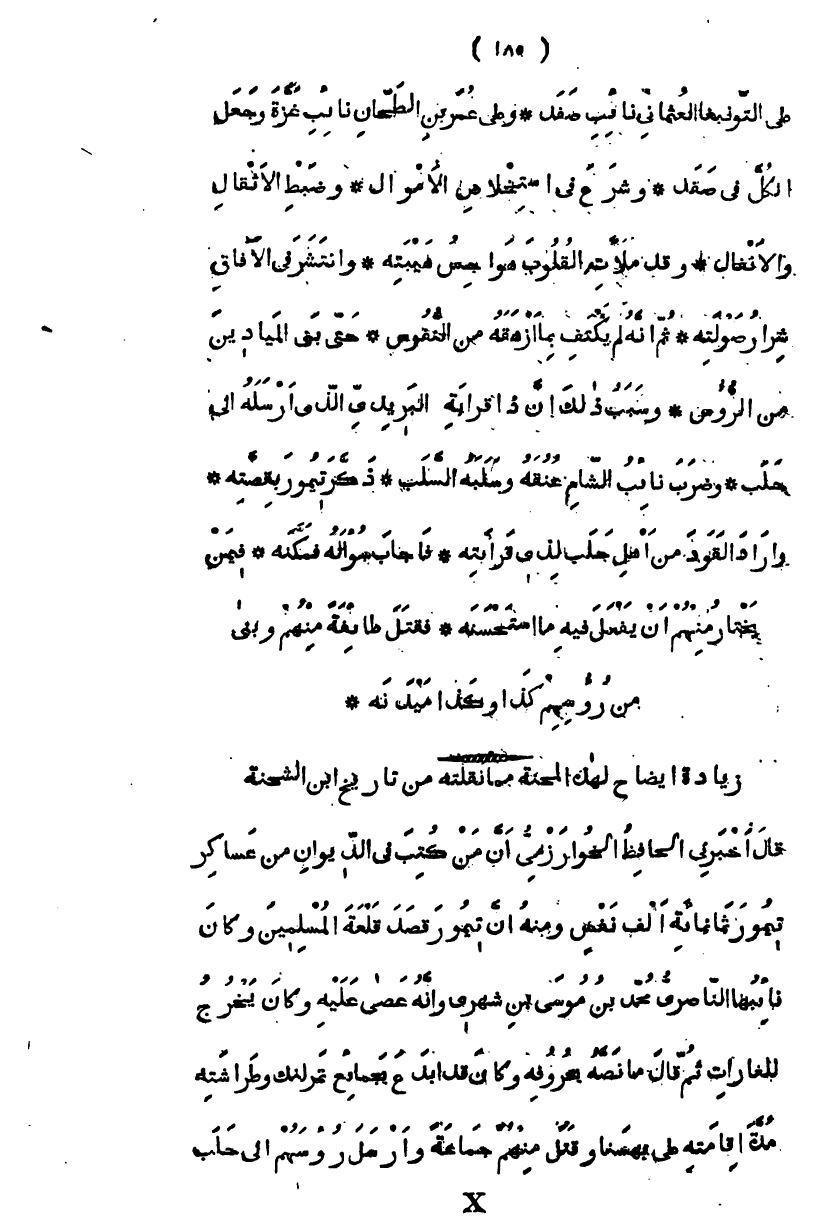 ( ١٨٥ )
على التّونبغا العُثمانيِّ نائِبِ صَفَد * وعلى عُمَرَ بْنِ الطَّحّانِ نائِبِ غَزَّةَ وجَعَلَ
الكُلَّ فى صَفَد * وشرَعَ فى اسْتِخْلاصِ الأَمْوالِ * وضَبْطِ الاَثْقالِ
والاَنْفالِ * وقد مَلَأَتِ القُلُوبَ هَواجِسُ هَيْبَتِه * وانْتَشَرَ فى الآفاقِ
شَرارُ صَوْلَتِه * ثُمَّ انَّهُ لَمْ يَكْتَفِ بِما اَزْهَقَهُ من النُّفُوس * حَتّى بَنى المَيادِينَ
من الرُّؤُس * وسَبَبُ ذٰلكَ اِنَّ ذا قَرابَةِ البَرِيدِيِّ الّذى اَرْسَلَهُ الى
حَلَب * وضَرَبَ نائِبُ الشّامِ عُنُقَهُ وسَلَبَهُ السَّلَب * ذَكَّرَ تِيمُورَ بِقِصَّتِه *
وارادَ القَوَدَ من اَهْلِ حَلَب لِذِى قَرابَتِه * فاَجابَ سُؤالَهُ فمَكَّنَه * فِيمَنْ
يَخْتارُ مِنْهُمْ اَنْ يَفْعَلَ فيهِ ما اسْتَحْسَنَه * فقَتَلَ طائِفَةً مِنْهُمْ وبنى
من رُؤُسِهِمْ كَذا وكَذا مَيْدَنَه *
زيادة ايضاح لهذه المحنة مما نقلته من تاريخ ابن الشحنة
قالَ أَخْبَرَنِى الحافِظُ الخُوارَزْمِىُّ اَنَّ مَنْ كُتِبَ فى الدِّيوانِ من عَساكِرِ
تِيمُورَ ثَمانمائَةِ اَلْف نَفْسٍ ومِنهُ انَّ تِيمُورَ قصَدَ قَلْعَةَ المُسْلِمِينَ وكانَ
نائِبُها النّاصِرىُّ مُحَمّد بنُ مُوسَى بنِ شهرى وانَّهُ عَصى عَلَيْهِ وكانَ يَخْرُجُ
لِلغاراتِ ثُمَّ قالَ ما نَصُّهُ بِحُرُوفِه وكانَ قد ابْدَعَ بَجمائِعِ تمرلنك وطَراشَتِه
مُدَّةَ اِقامَتِهِ على بَهَسْنا وقَتَلَ مِنْهُمْ جَماعَةً وأَرْسَلَ رُؤُسَهُمْ الى حَلَب
X